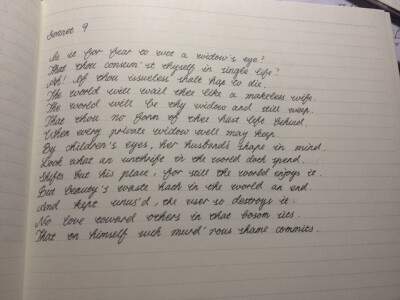 Sonnet 9
Is it for fear to wet a widow's eye?
That thou consum'st thyself in single life?
Ah! If thou issueless shalt hap to die.
The world will wail thee like a makeless wife.
The world will be thy widow and still weep.
That thou no form of thee hast left behind.
When every private widow well may keep.
By children's eyes, her husband's shape in mind.
Look what an unthrift in the world doth spend.
Shifts but his place, for still the world enjoys it.
But beauty's waste hath in the world an end.
And kept unus'd, the user so destroys it.
No love toward others in that bosom sits.
That on himself such murd'rous shame commits.